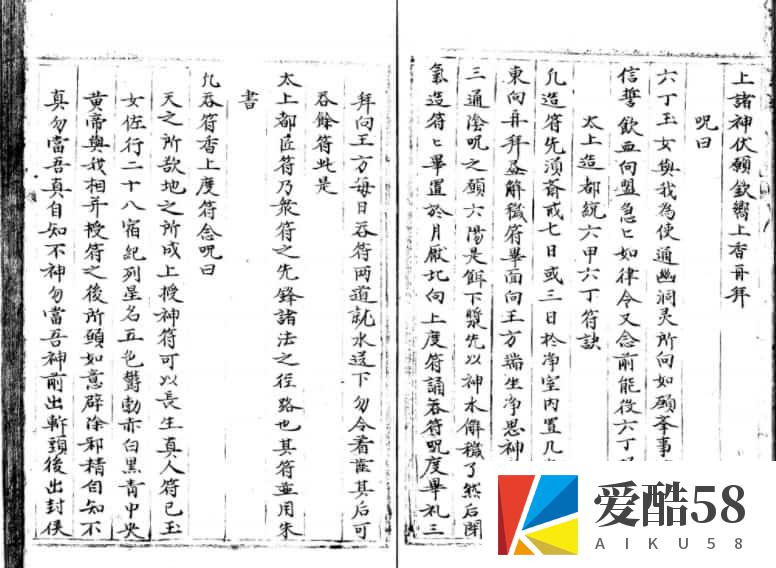 上諸神伏願欽嚮上香再拜
呪曰
六丁玉女與我為使通幽洞灵所向如願奉事
信誓歃血向盟急〻如律令又念前能役六丁
太上造都統六甲六丁符訣
凢造符先須斎戒七日或三日於净室内置几
東向再拜盈解穢符畢面向王方端坐净思神
三通陰呪之願六陽是餌下漿先以神水解穢了然后閉
氣造符〻畢置於月厭北向上度符誦吞符呪度畢礼三
拜向王方每日吞符两道就水送下勿令着齒其后可
吞餘符此是
太上都匠符乃衆符之先鋒諸法之徑路也其符並用朱
書
凢吞符香上度符念呪曰
天之所欲地之所成上授神符可以長生真人符已玉
女佐行二十八宿紀列星名五色欝勃赤白黒青中央
黄帝與我相并授符之後所願如意辟除邪精自知不
真勿當吾真自知不神勿當吾神前出斬頭後出封侯
爱酷58
AIKU58